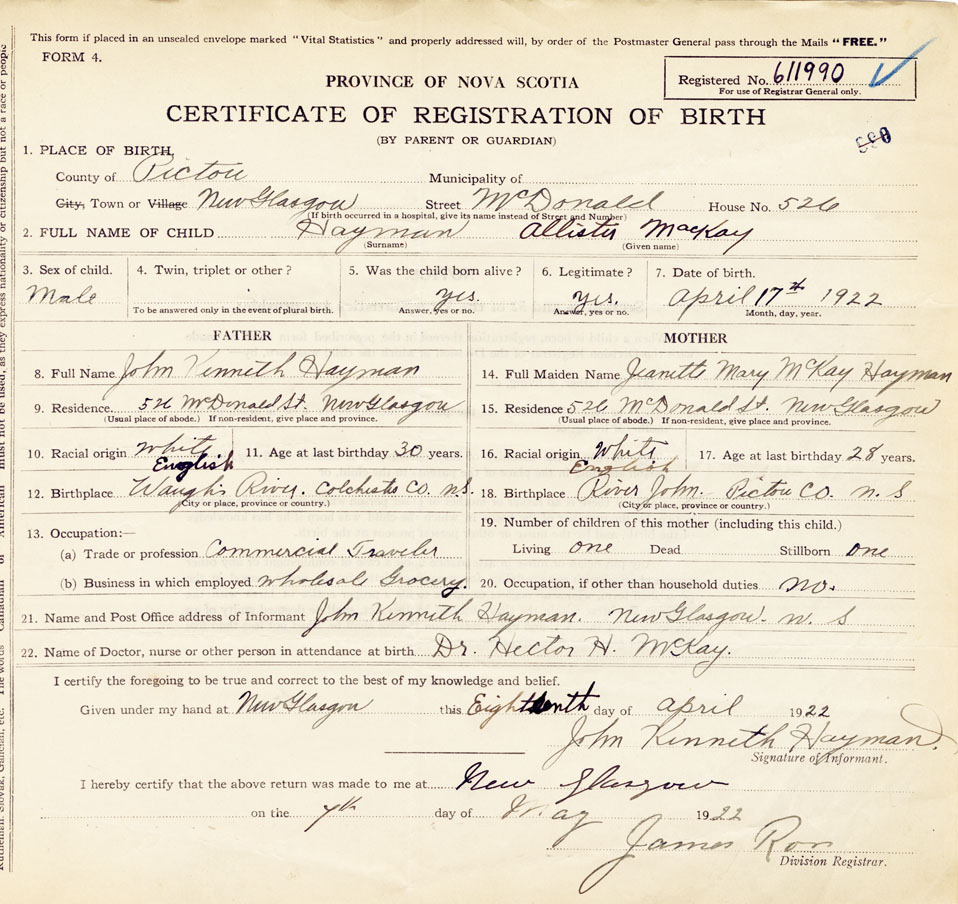 This form if placed in an unsealed envelope marked "Vital Statistics" and properly addressed will, by order of the Postmaster General pass through the Mails "FREE."
FORM 4.
Registered No. 611990
For use of Registrar General only.
PROVINCE OF NOVA SCOTIA
CERTIFICATE OF REGISTRATION OF BIRTH
(BY PARENT OR GUARDIAN)
1. PLACE OF BIRTH,
County of Pictou Municipality of
City, Town or Village New Glasgow Street McDonald House No. 526
(If birth occurred in a hospital, give its name instead of Street and Number)
2. FULL NAME OF CHILD Hayman Allister MacKay
(Surname) (Given name)
3. Sex of child. 4. Twin, triplet or other? 5. Was the child born alive? 6. Legitimate? 7. Date of birth.
Male yes. yes. April 17th 1922
To be answered only in the event of plural birth. Answer, yes or no. Answer, yes or no. Month, day, year.
FATHER MOTHER
8. Full Name John Kenneth Hayman 14. Full Maiden Name Jeanette Mary McKay Hayman
9. Residence 526 McDonald St. New Glasgow 15. Residence 526 McDonald St. New Glasgow
(Usual place of abode.) If non-resident, give place and province. (Usual place of abode.) If non-resident, give place and province.
10. Racial origin White 11. Age at last birthday 30 years. 16. Racial origin White 17. Age at last birthday 28 years.
English English
12. Birthplace Waugh's River. Colchester Co. n.S. 18. Birthplace River John. Pictou Co. n. S
(City or place, province or country.) (City or place, province or country.)
13. Occupation:— 19. Number of children of this mother (including this child.)
(a) Trade or profession Commercial Traveler Living one Dead Stillborn one
(b) Business in which employed wholesale Grocery. 20. Occupation, if other than household duties no.
21. Name and Post Office address of Informant John Kenneth Hayman. New Glasgow. n. S
22. Name of Doctor, nurse or other person in attendance at birth Dr. Hector H. McKay.
I certify the foregoing to be true and correct to the best of my knowledge and belief.
Given under my hand at New Glasgow this Eighteenth day of april 1922
John Kenneth Hayman.
Signature of Informant.
I hereby certify that the above return was made to me at New Glasgow
on the 7th day of May 1922
James
Division Registrar.